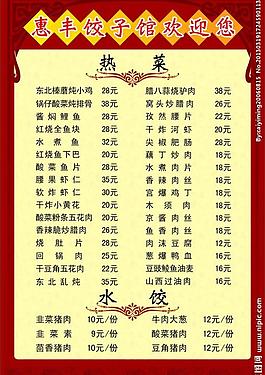 惠丰饺子馆欢迎您
热菜
东北榛蘑炖小鸡 28元
腊八蒜烧驴肉 38元
锅仔酸菜炖排骨 38元
窝头炒腊肉 26元
酱焖鲤鱼 28元
孜然腰片 22元
红烧全鱼块 28元
干炸河虾 20元
水煮鱼 32元
尖椒肥肠
红烧鱼下巴 20元
藕丁炒肉 18元
酸菜鱼片 28元
水煮肉片 18元
腰果虾仁 35元
香辣肉丝 18元
软炸虾仁 30元
宫爆鸡丁 18元
干炸小黄花 20元
木须肉 18元
酸菜粉条五花肉 28元
京酱肉丝 18元
香辣脆炒腊肉 26元
鱼香肉丝 18元
烧肚片 28元
肉沫豆腐 12元
回锅肉 22元
葱爆鸭血 16元
干豆角五花肉 22元
豆豉鲮鱼油麦 16元
东北乱炖 35元
山西过油肉 16元
水饺
韭菜猪肉 10元/份
牛肉大葱 12元/份
韭菜素 9元/份
酸菜猪肉 12元/份
茴香猪肉 10元/份
豆角猪肉 12元/份
昵图网 www.nipic.com
By:caiyiming20060815 No.20130319172459011311